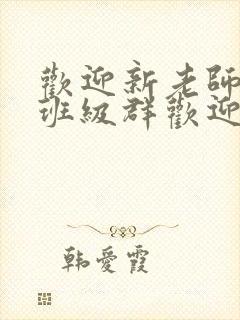 歡迎新老師
班級群歡迎
韩愛霞